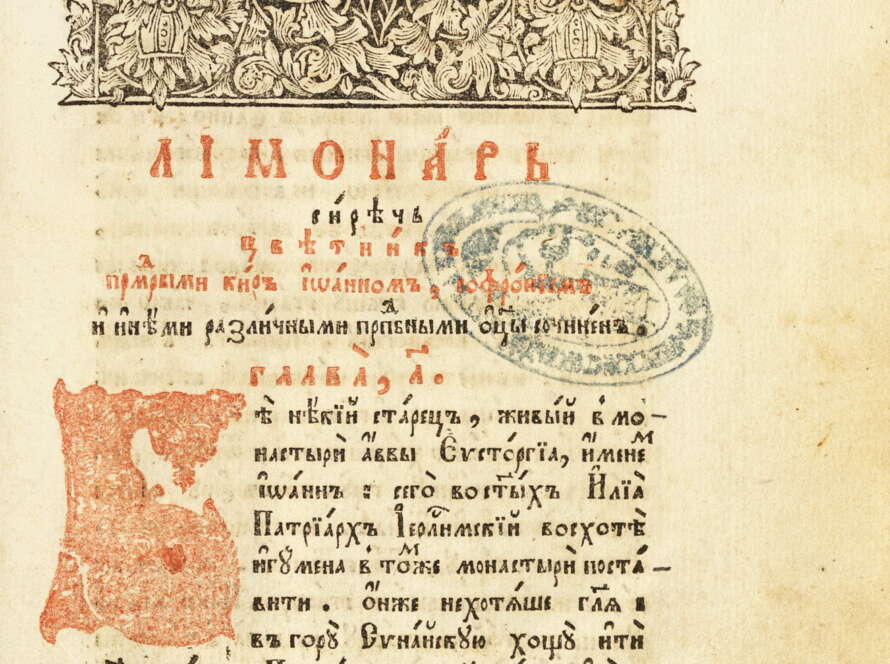 ЛІМОНА́РЬ
си́рѣчь
цвѣтни́къ
прⷣмрыми ки́ръ і҆ѡа́нномъ, софро́нїемъ
и҆ и҆нѣ́ми разли́чными прпⷣбными ѻ҆ц҃ы сочине́нъ.
глава̀, а҃.
Бѣ̀ нѣ́кїй ста́рецъ, живы́й в̾ мо‐
настырѝ а҆́ввы Є҆ѵсто́ргїа, и҆́менеⷨ
і҆ѡа́ннъ : сего̀ во ст҃ы́хъ И҆лїа̀
Патрїа́рхъ І҆ерⷭ҇ли́мскїй восхотѣ̀
и҆гꙋ́мена в̾ то́мже монастырѝ поста́‐
вити. Ѻ҆́нже нехотѧ́ше гл҃ѧ :
въ горꙋ̀ Сѵна́йскꙋю хощꙋ̀ и҆тѝ